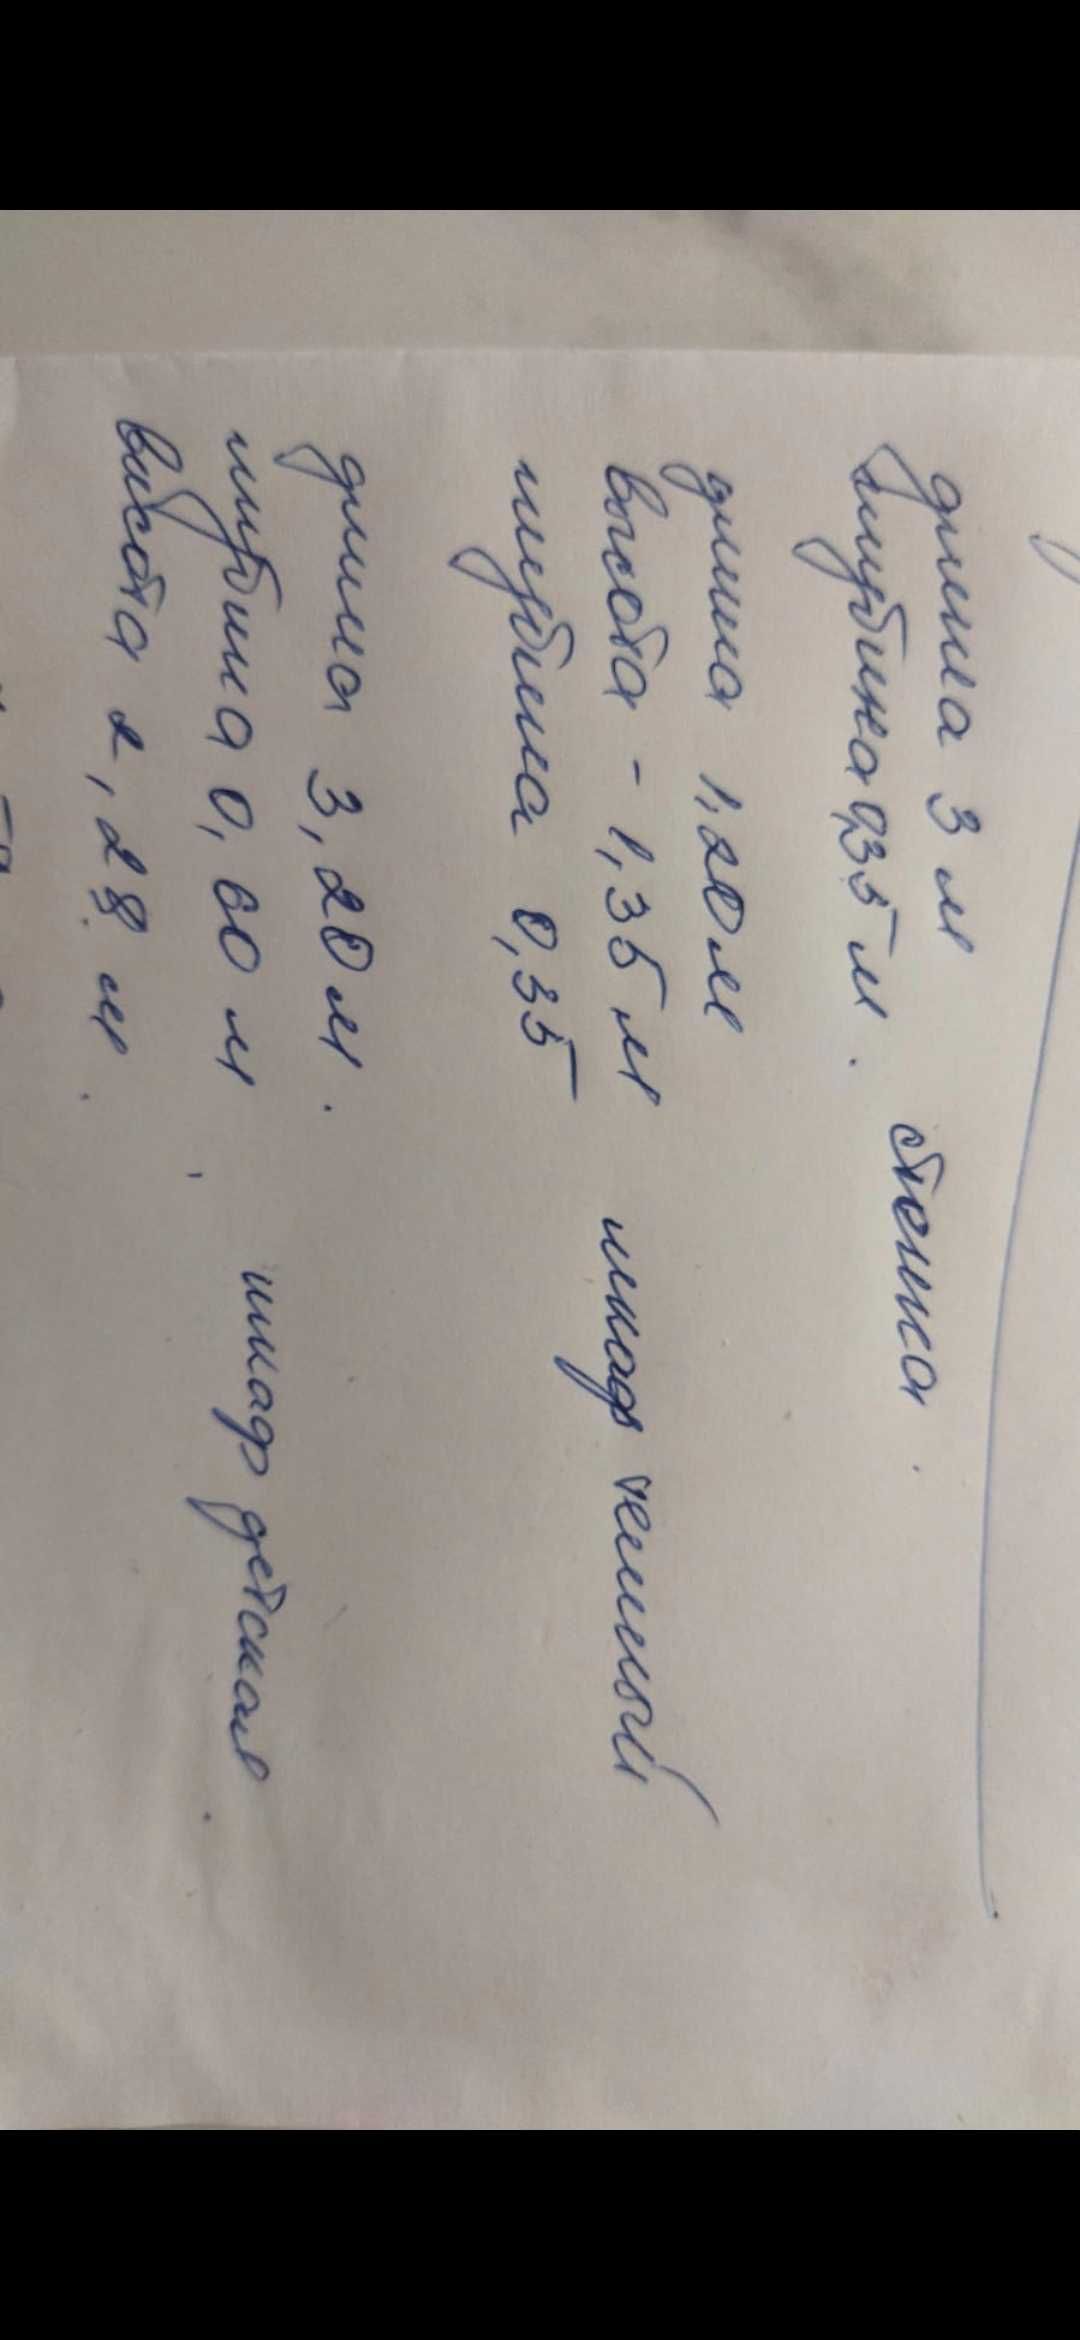 длина 3 м
глубина 0,35 м. стенка.
длина 1,20 м
высота - 1,35 м шкаф темный
глубина 0,35
длина 3,20 м.
глубина 0,60 м, шкаф детская.
высота 2,28 м.